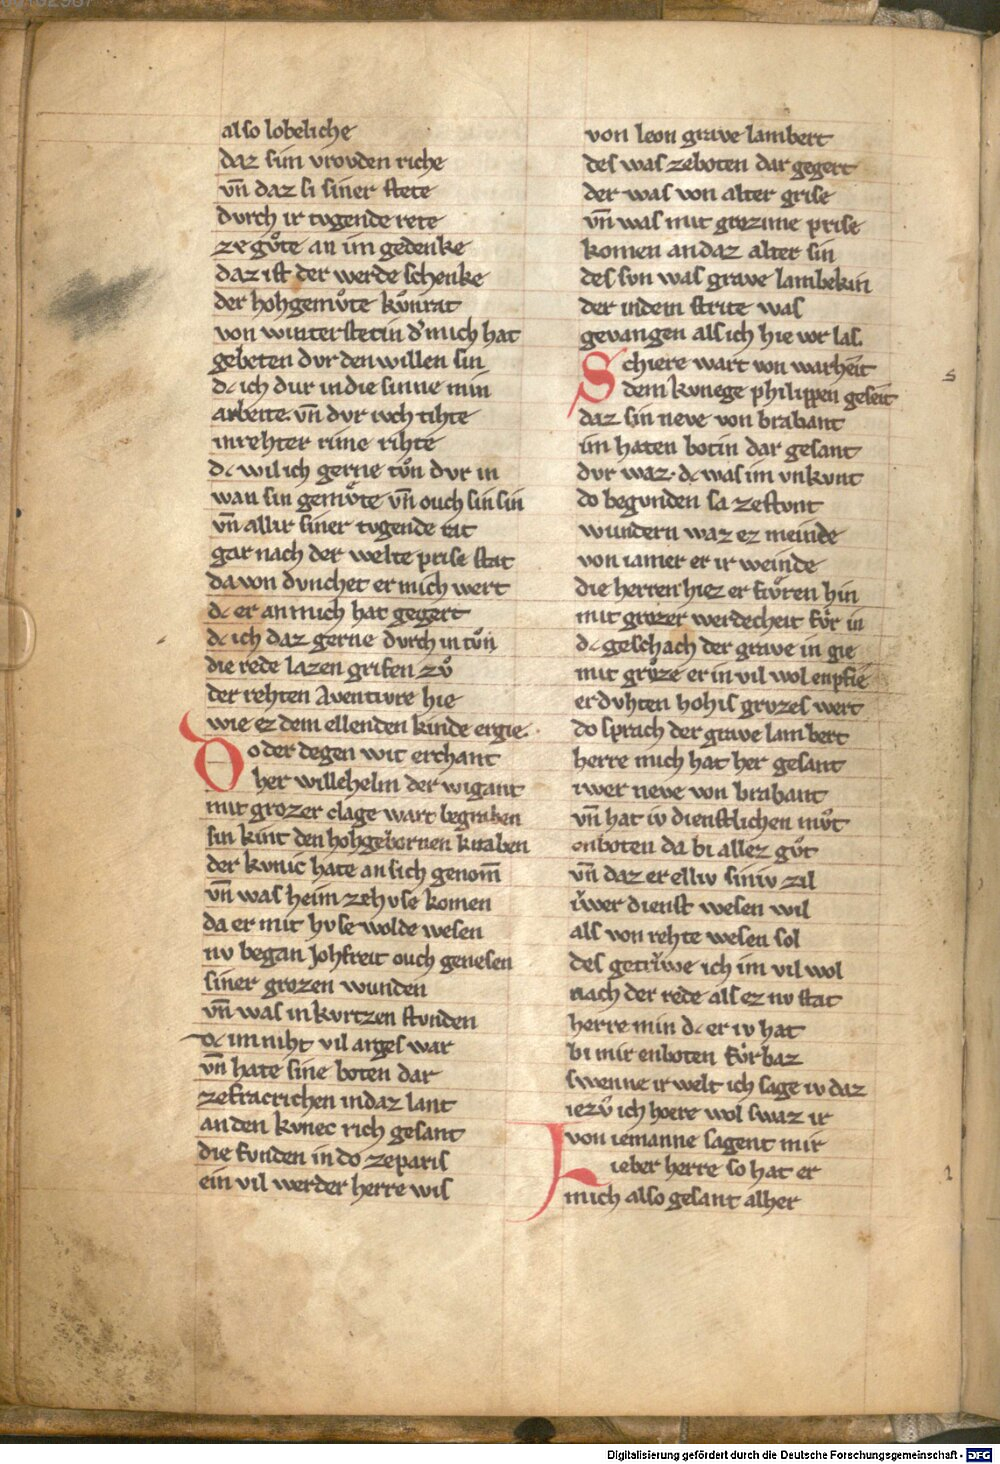 also lobeliche
daz sim vrovden riche
vn̄ daz si siner stete
durch ir tvgende rete
ze gůte an im gedenke
daz ist der werde schenke
der hohgemůte kůnrat
von winterstetin d' mich hat
gebeten dvr den willen sin
dc ich dur in die sinne min
arbeite. vn̄ dvr ivch tihte
in rehter rime rihte
dc wil ich gerne tůn dvr in
wan sin gemůte vn̄ ouch sin sin
vn̄ allir siner tvgende rat
gar nach der welte prise stat
da von dvnchet er mich wert
dc er an mich hat gegert
dc ich daz gerne durch in tůn
die rede lazen grifen zů
der rehten Aventivre hie
wie ez dem ellenden kinde ergie.
Do der degen wit erchant
her willehelm der wigant
mit grozer clage wart begraben
sin kint den hohgebornen knaben
der kvnic hate an sich genom̄
vn̄ was heim ze hvse komen
da er mit hvse wolde wesen
nv began Johfreit ouch genesen
siner grozen wunden
vn̄ was in kvrtzen stvnden
dc im niht vil arges war
vn̄ hate sine boten dar
ze francrichen in daz lant
an den kvnec rich gesant
die fvnden in do ze paris
ein vil werder herre wis
von leon grave lambert
des was ze boten dar gegert
der was von alter grise
vn̄ was mit grozime prise
komen an daz alter sin
des svn was grave lambekin
der in dem strite was
gevangen als ich hie vor las.
Schiere wart von warheit
dem kvnege philippen geseit
daz sin neve von brabant
im haten botin dar gesant
dvr waz. dc was im vnkvnt
do begvnden sa ze stvnt
wundern waz ez meinde
von iamer er ir weinde
die herren hiez er fvͦren hin
mit grozer werdecheit fvͦr in
dc geschach der grave in gie
mit grůze er in vil wol enpfie
er dvhten hohis grvzes wert
do sprach der grave lambert
herre mich hat her gesant
iwer neve von brabant
vn̄ hat iv dienstlichen můt
enboten da bi allez gůt
vn̄ daz er elliv siniv zil
iwer dienst wesen wil
als von rehte wesen sol
des getrvͦwe ich im vil wol
nach der rede als ez nv stat
herre min dc er iv hat
bi mir enboten fvͦrbaz
swenne ir welt ich sage iv daz
iezů ich hoere wol swaz ir
von iemanne sagent mir
Lieber herre so hat er
mich also gesant alher
s
l
Digitalisierung gefördert durch die Deutsche Forschungsgemeinschaft - DFG